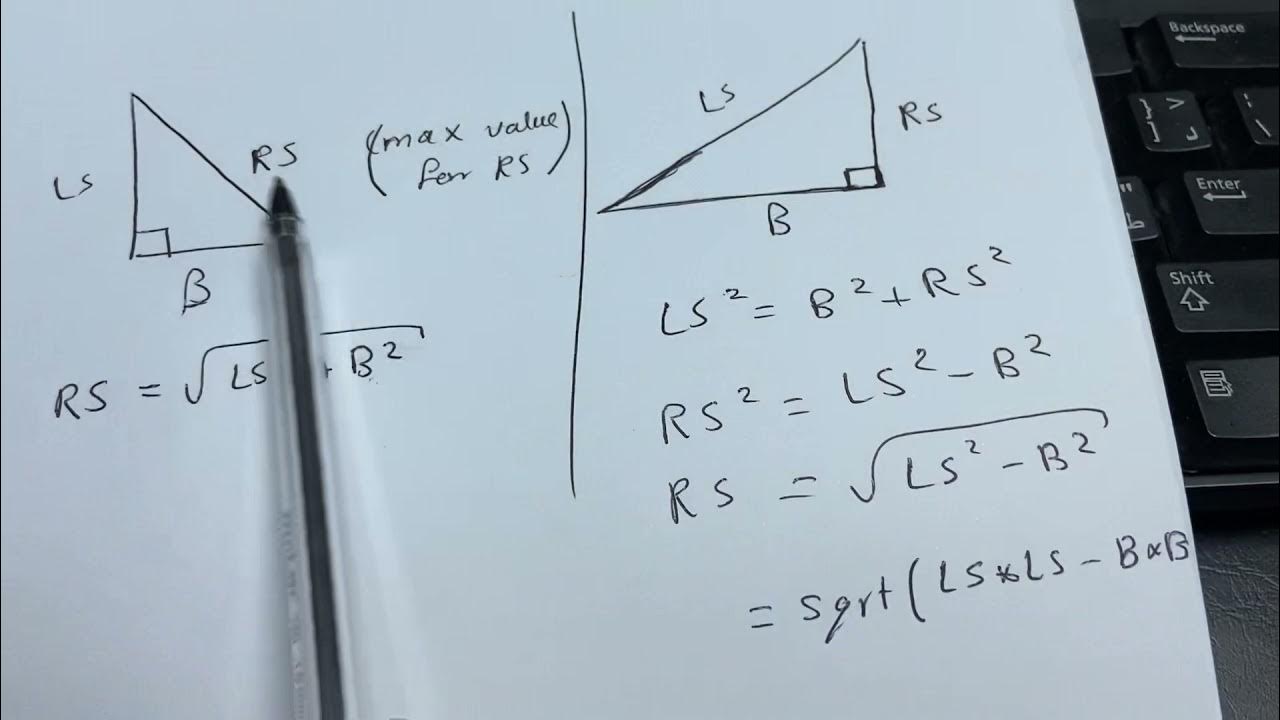 LS
RS
(max value
for RS)
B
RS = √LS + B²
LS
RS
B
LS² = B² + RS²
RS² = LS² - B²
RS = √LS² - B²
= sqrt(LS*LS - B*B
Backspace
Enter
Shift